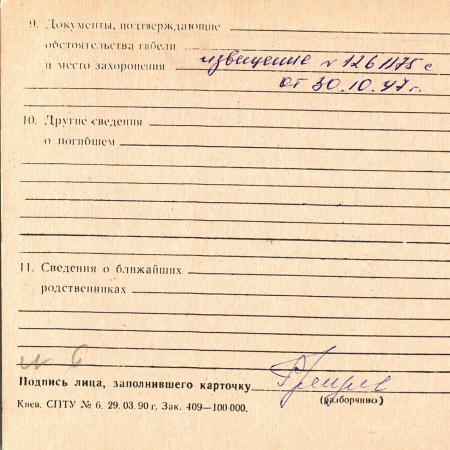 9. Документы, подтверждающие
обстоятельства гибели
и место захоронения извещение № 1261175 с
от 30.10.47 г.
10. Другие сведения
о погибшем
11. Сведения о ближайших
родственниках
Подпись лица, заполнившего карточку
(разборчиво)
Киев. СПТУ № 6. 29. 03. 90 г. Зак. 409—100 000.